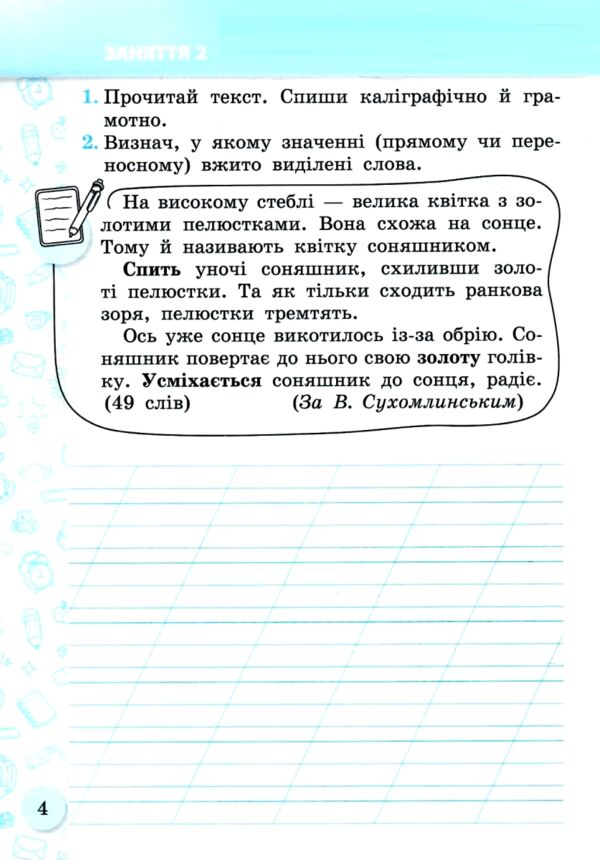 ЗАНЯТТЯ 2
1. Прочитай текст. Спиши каліграфічно й гра-
мотно.
2. Визнач, у якому значенні (прямому чи пере-
носному) вжито виділені слова.
На високому стеблі — велика квітка з зо-
лотими пелюстками. Вона схожа на сонце.
Тому й називають квітку соняшником.
Спить уночі соняшник, схиливши золо-
ті пелюстки. Та як тільки сходить ранкова
зоря, пелюстки тремтять.
Ось уже сонце викотилось із-за обрію. Со-
няшник повертає до нього свою золоту голів-
ку. Усміхається соняшник до сонця, радіє.
(49 слів) (За В. Сухомлинським)
4